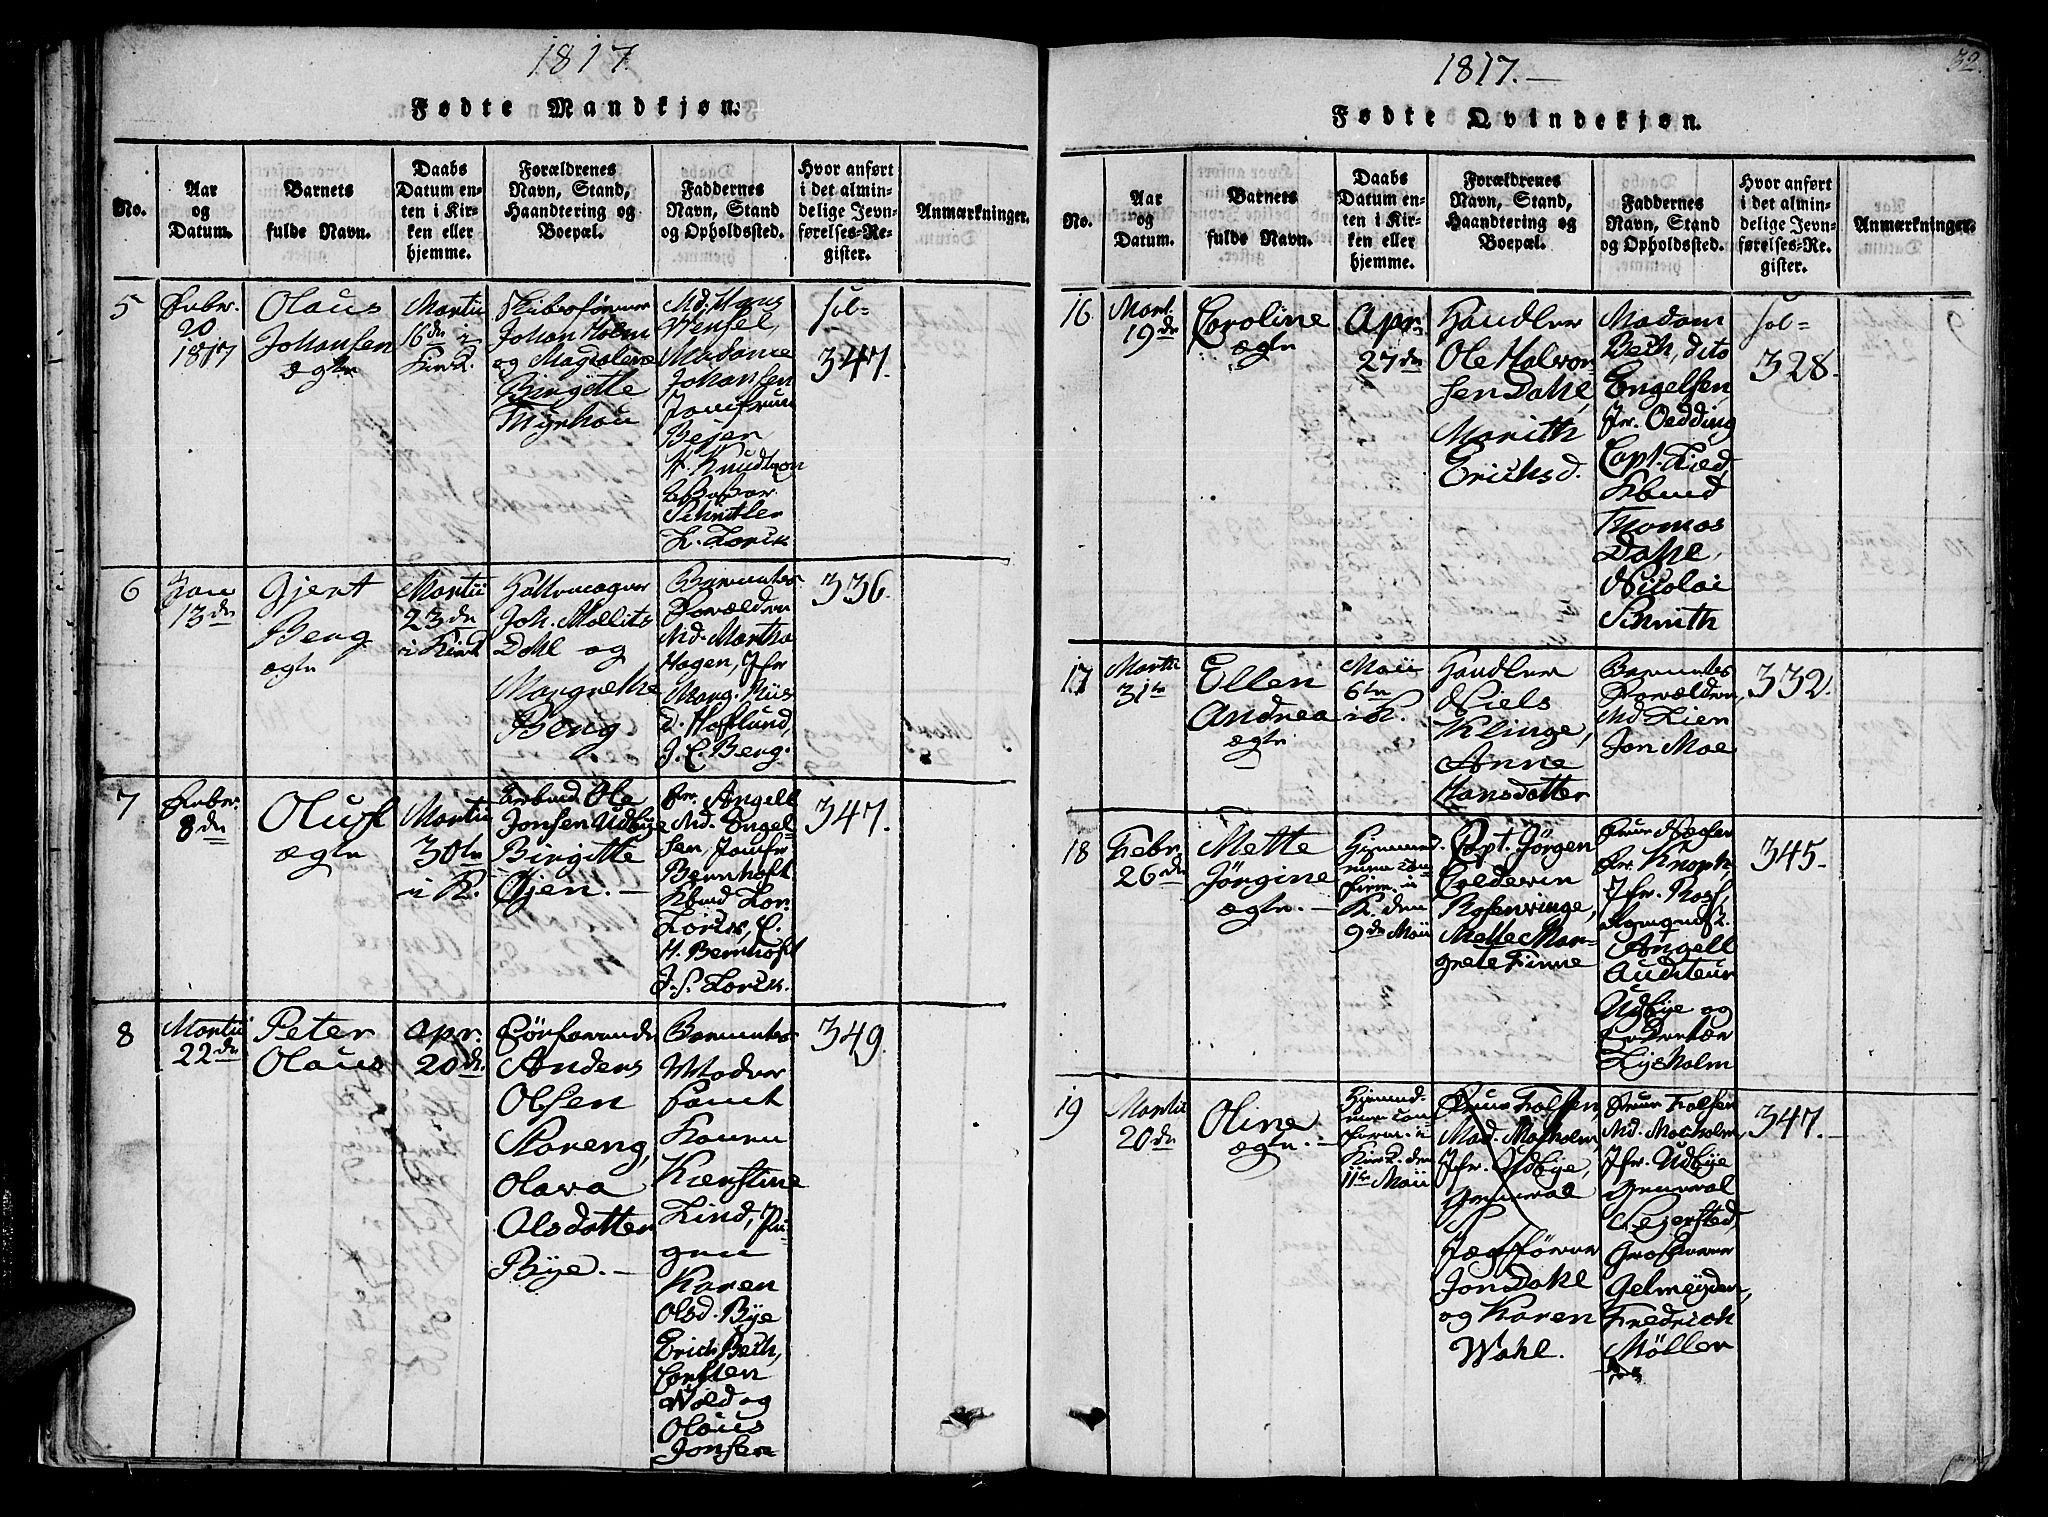 1817.
Fødte Mandkjøn.
No.
Aar
og
Datum.
Barnets
fulde Navn.
Daabs
Datum en-
ten i Kir-
ken eller
hjemme.
Forældrenes
Navn, Stand,
Haandtering og
Boepæl.
Faddernes
Navn, Stand
og Opholdssted.
Hvor anført
i det almin-
delige Jevn-
førelses-Re-
gister.
Anmærkninger.
5
Febr.
20
1817
Olaus
Johansen
ægte
Martii
16de i
Kirk.
Johan Holm
og Magdalene
Birgitte
Thyrhou
Md. Hans
Wensel,
Madame
Johansen
Jomfrue
Bejer
H. Knudtzon
Schnitler
L. Lorck
fol-
347.
6
Jan
13de
Gjert
Berg
ægte
Martii
23de
i Kirk
Joh. Mollits
Dahl og
Margrethe
Berg.
Barnets
Forældre
Md. Martha
Hagen, Jfr
Marg. Riis
Hoflund,
J. C. Berg.
336.
7
Febr.
8de
Oluf
ægte
Martii
30te
i K.
Arbmd Ole
Jonsen Udbye
Birgitte
Øjen. —
Fr. Angell
Md. Engel-
sen, Jomfr
Bernhoft
Kbmd Lor.
Lorck, C.
H. Bernhoft
J. S. Lorck.
347.
8
Martii
22de
Peter
Olaus
Apr.
20de.
Anders
Olsen
Støreng,
Olava
Olsdatter
Bye. —
Barnets
Moder
samt
Konen
Kierstine
Lind, Pi-
gen
Karen
Olsd. Bye
Erich Beth,
Torsten
Wold og
Olaus
Jonsen
349.
1817. —
32.
Fødte Qvindekjøn.
No.
Aar
og
Datum.
Barnets
fulde Navn.
Daabs
Datum en-
ten i Kir-
ken eller
hjemme.
Forældrenes
Navn, Stand,
Haandtering og
Boepæl.
Faddernes
Navn, Stand
og Opholdssted.
Hvor anført
i det almin-
delige Jevn-
førelses-Re-
gister.
Anmærkninger.
16
Mart.
19de
Caroline
ægte
Apr.
27de
Handler
Ole Halvor
sen Dahl,
Marith
Erichsd.
Madam
Beth, dito
Engelsen
Jfr. Oedding
Capt. Lied,
Kbmd
Thomas
Dahl,
Nicolai
Schmith
fol-
328.
17
Martii
31te
Ellen
Andrea
ægte
Maii
6te
i K.
Handler
Niels
Klinge,
Anne
Hansdatter
Barnets
Forældre,
Md Lien
Jon Moe
332.
18
Febr.
26de
Mette
Jörgine
ægte. —
Hjemmed.
K. den
9de Maii
Capt. Jörgen
Coldevin
Rosenvinge,
Mette Mar-
grete Finne
Fruer Nægler
Fr. Knoph,
Jfr. Ross,
Angell
Auditeur
Udbye og
Lysholm
345.
19
Martii
20de
Oline
ægte. —
Hjemmed.
Kirk. den
11te Maii
Fruer Folsen,
Mad. Motholm,
Jfr. Udbye,
General
Jægtfører
Jon Dahl
og Karen
Wahl.
Fruer Folsen
Md. Motholm,
Jfr. Udbye
General
Lejersted,
Grosserer
Gelmeyden,
Fredrich
Möller
347.